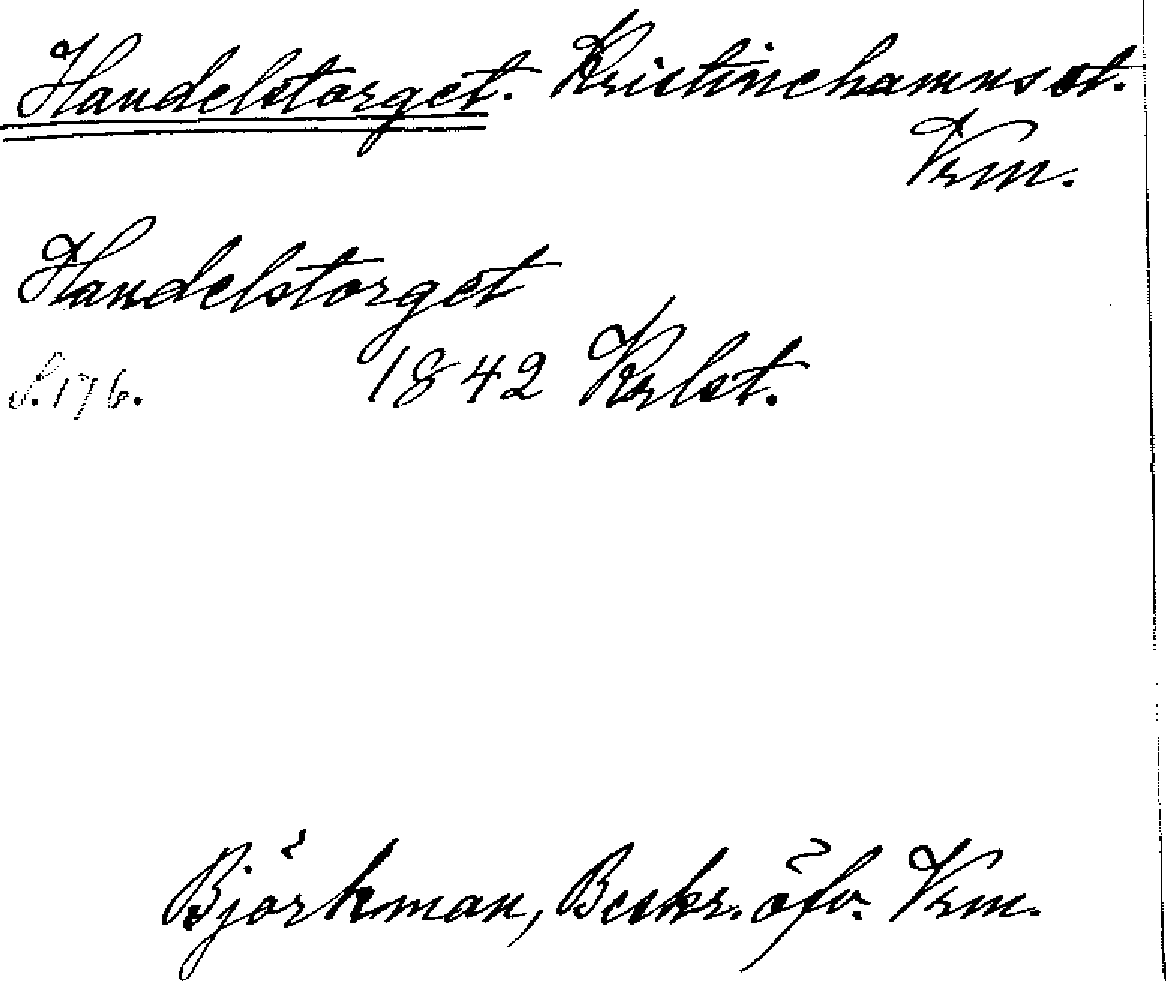 Handelstorget. Kristinehamns st.
Vrm.
Handelstorget
s. 176. 1842 Krlst.
Björkman, Beskr. öfv. Vrm.